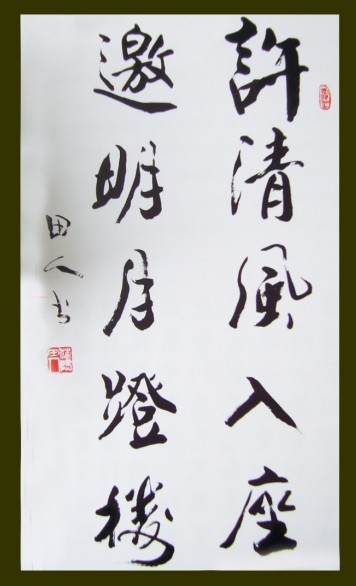 許清風入座
邀明月蹬樓
田人书